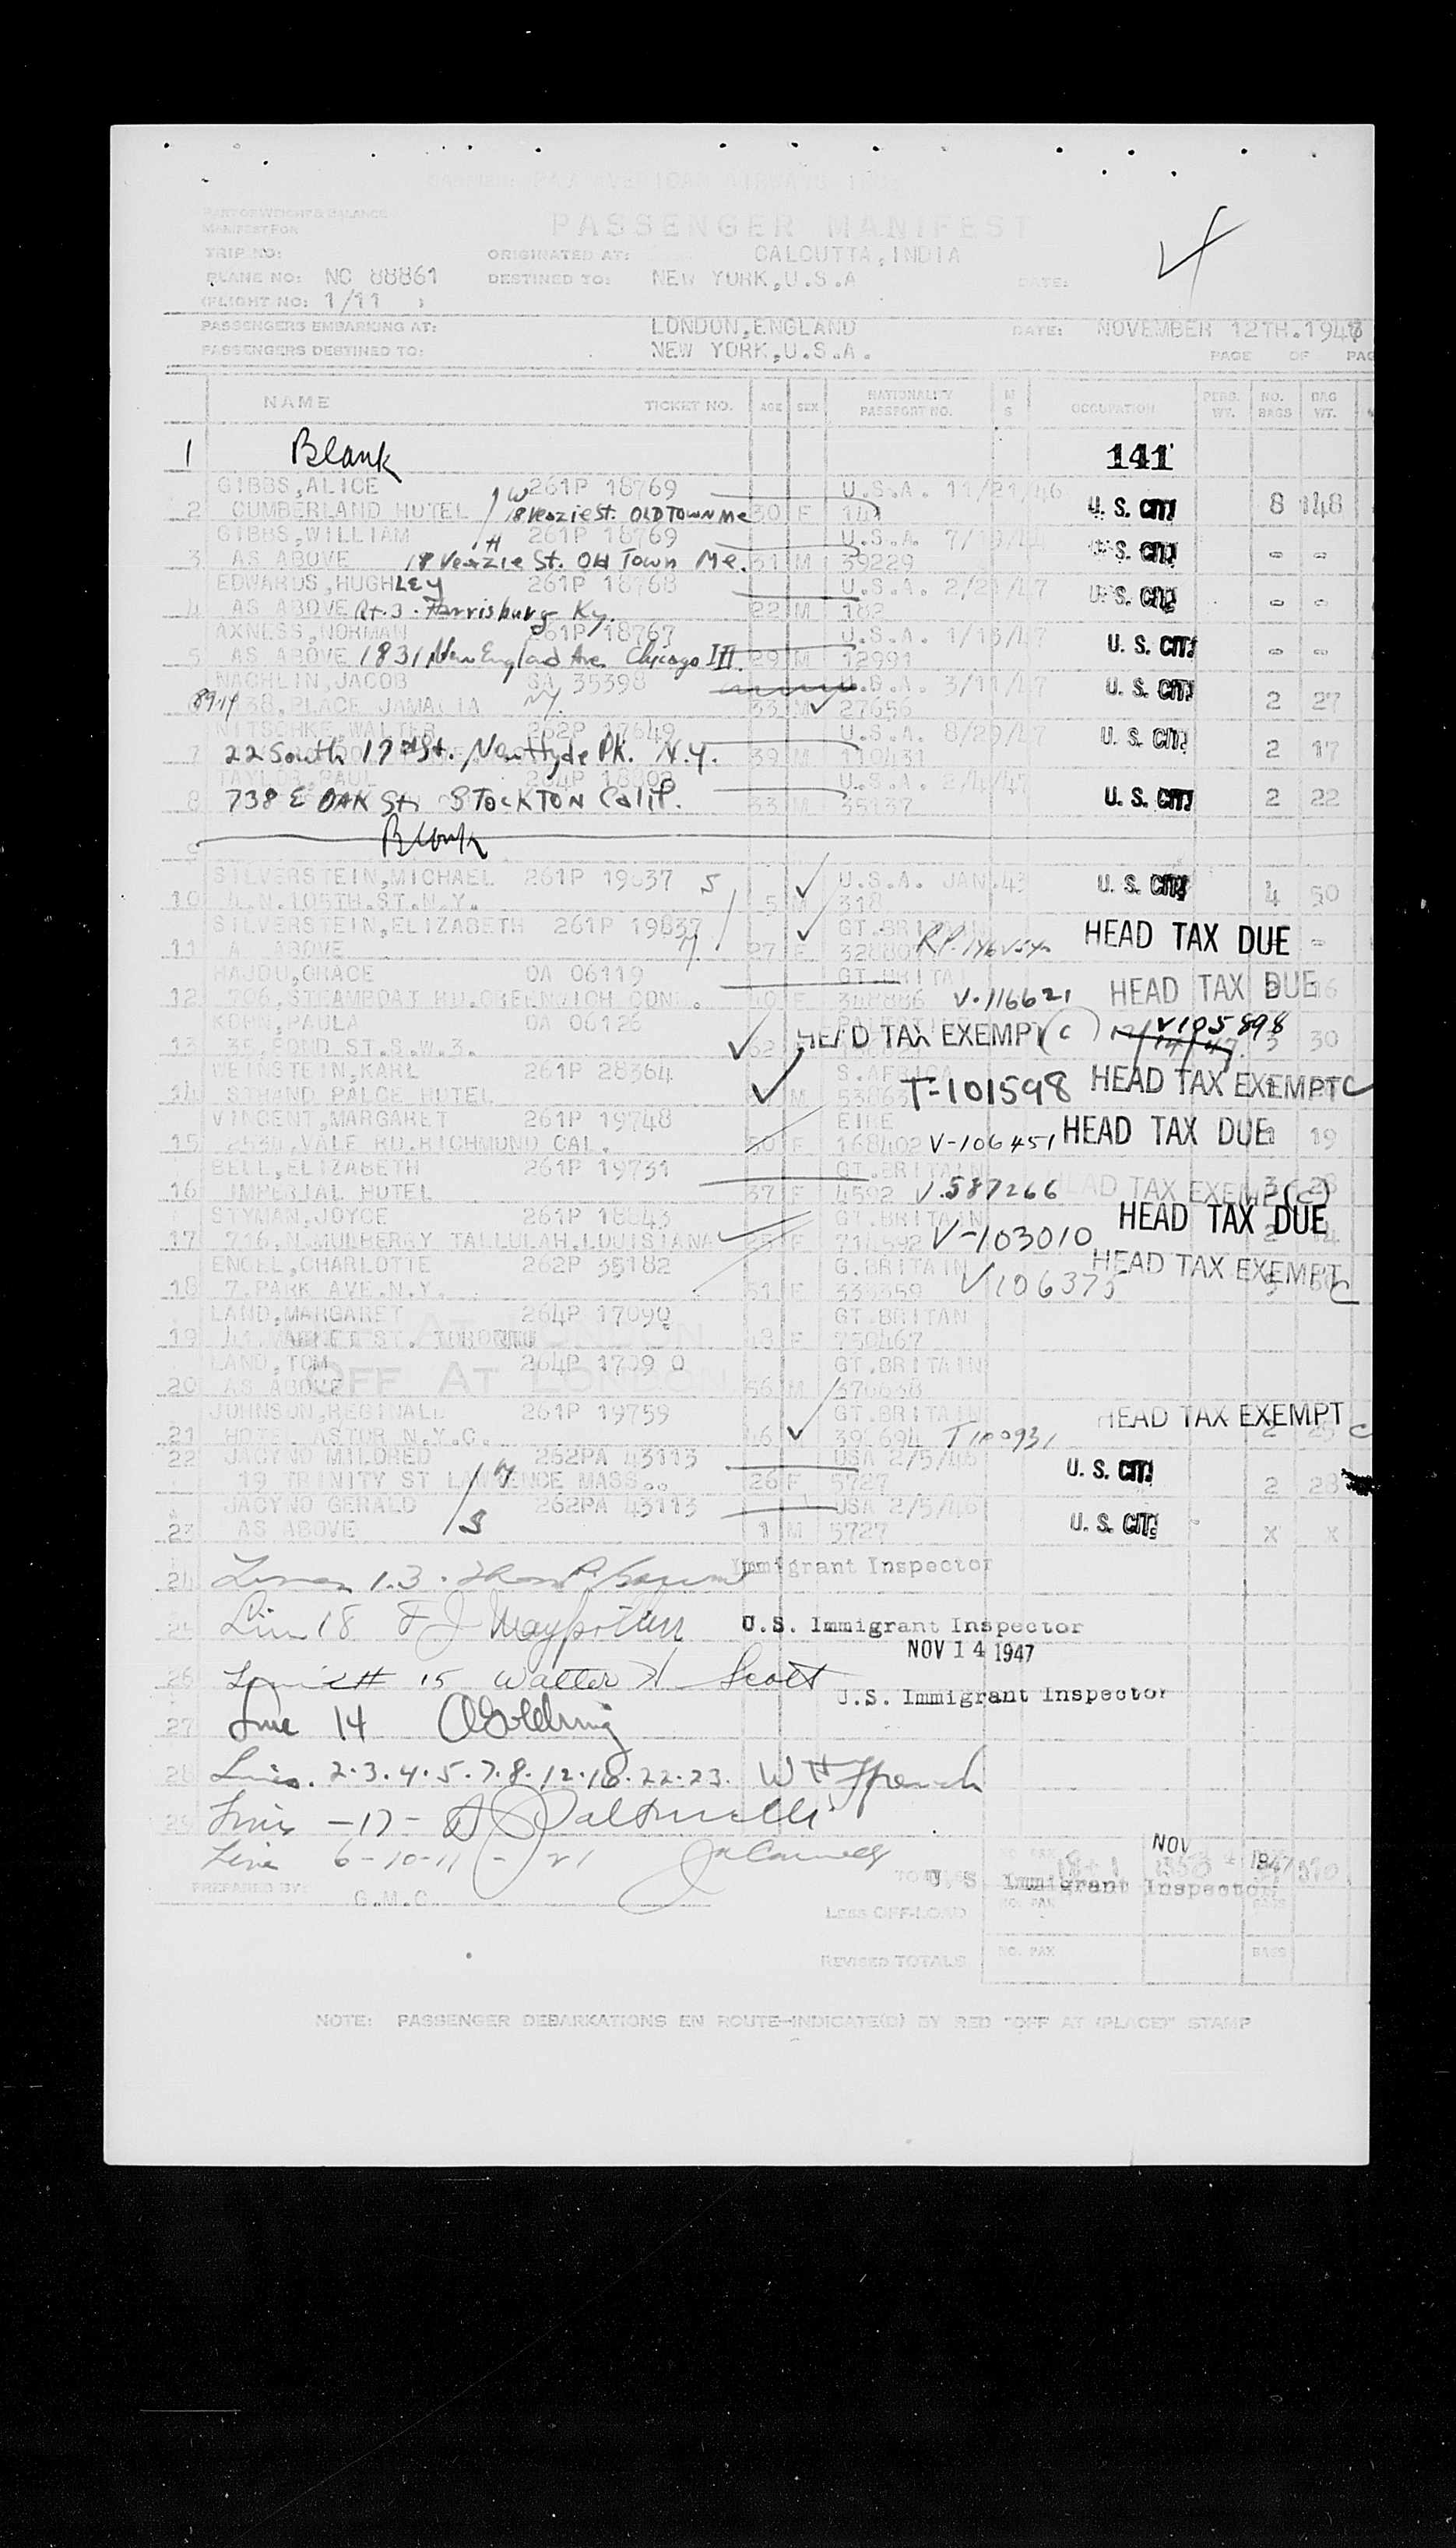 PAN AMERICAN AIRWAYS INC.
PART OF WEIGHT & BALANCE
MANIFEST FOR
PASSENGER MANIFEST
TRIP NO: ORIGINATED AT: CALCUTTA, INDIA
PLANE NO: NC 88861 DESTINED TO: NEW YORK, U.S.A DATE:
(FLIGHT NO: 1/11 )
PASSENGERS EMBARKING AT: LONDON, ENGLAND DATE: NOVEMBER 12TH. 194
PASSENGERS DESTINED TO: NEW YORK, U.S.A.
PAGE OF PAG
NAME TICKET NO. AGE SEX NATIONALITY PASSPORT NO. M S OCCUPATION PERS. WT. NO. BAGS BAG WT.
1 Blank 141
GIBBS, ALICE W 261P 18769 U.S.A. 11/21/46
2 CUMBERLAND HOTEL 18 Veazie St. OLD TOWN Me 30 F U.S. CIT. 8 148
GIBBS, WILLIAM H 261P 18769 U.S.A.
3 AS ABOVE 18 Veazie St. Old Town Me. 31 M 39229 U.S. CIT. - -
EDWARDS, HUGHLEY 261P 18768 U.S.A. 2/21/47
4 AS ABOVE Rt. 3. Ky. 22 M 182 U.S. CIT. - -
AXNESS, NORMAN 261P 18767 U.S.A.
5 AS ABOVE 1831 New England Ave Chicago Ill. 29 M 12991 U.S. CIT. - -
NACHLIN, JACOB SA 35398 U.S.A. 3/11/47
PLACE JAMAICA N.Y. 33 M 27656 U.S. CIT. 2 27
NITSCHKE, WALTER 262P 17649 U.S.A. 8/29/47
7 22 South 17th St. New Hyde Pk. N.Y. 39 M 110431 U.S. CIT. 2 17
TAYLOR, PAUL U.S.A. 2/4/47
8 738 E OAK St. STOCKTON Calif. 33 M 35137 U.S. CIT. 2 22
9 Blank
SILVERSTEIN, MICHAEL 261P 19837 S U.S.A. JAN. 43
10 4.N. 105TH. ST. N.Y. 5 M 318 U.S. CIT. 4 50
SILVERSTEIN, ELIZABETH 261P 19837 M GT. BRITAIN
11 ABOVE 27 F HEAD TAX DUE -
HAJDU, GRACE OA 06119 GT. BRITAI
12 706, STEAMBOAT RD. GREENWICH CONN. 40 F V-116621 HEAD TAX DUE
KOHN, PAULA OA 06126
13 35, POND ST. S.W.3. 62 HEAD TAX EXEMPT (C) V105898 3 30
WEINSTEIN, KARL 261P 28364 S. AFRICA
14 STRAND PALCE HOTEL M T-101598 HEAD TAX EXEMPT C
VINCENT, MARGARET 261P 19748 EIRE
15 VALE RD. RICHMOND CAL. 30 F 168402 V-106451 HEAD TAX DUE 1 19
BELL, ELIZABETH 261P 19731 GT. BRITAIN
16 IMPERIAL HOTEL 37 F 4592 V.587266 HEAD TAX EXEMPT (C)
STYMAN, JOYCE 261P 18643 GT. BRITAIN
17 N. MULBERRY TALLULAH, LOUISIANA F V-103010 HEAD TAX DUE
ENGEL, CHARLOTTE 262P 35182 G. BRITAIN
18 7. PARK AVE. N.Y. 51 F V106375 HEAD TAX EXEMPT C
LAND, MARGARET 264P 17090 GT. BRITAN
19 43 F 750467
LAND, TOM 264P 1709 0 GT. BRITAIN
OFF AT LONDON
20 AS ABOVE 56 M
JOHNSON, REGINALD 261P 19759 GT. BRITAIN
21 HOTEL ASTOR N.Y.C. 46 T100931 HEAD TAX EXEMPT C
22 JACYNO MILDRED 262PA 43113 USA 2/5/46
19 TRINITY ST LAWRENCE MASS.. 26 F 5727 U.S. CIT. 2 28
JACYNO GERALD S 262PA 43113 USA 2/5/46
23 AS ABOVE 1 M 5727 U.S. CIT. X X
24 Lines 1.3. Immigrant Inspector
25 Line 18 F J U.S. Immigrant Inspector
NOV 14 1947
26 Line # 15 Walter Scott
U.S. Immigrant Inspector
27 Line 14
28 Lines. 2.3.4.5.7.8.12.16.22.23. W H Ffrench
29 Line -17-
Line 6-10-11-21
NOV 1947
U.S. Immigrant Inspector
PREPARED BY: G.M.C
LESS OFF-LOAD NO. PAX BAGS
REVISED TOTALS NO. PAX BAGS
NOTE: PASSENGER DEBARKATIONS EN ROUTE-INDICATE(D) BY RED "OFF AT (PLACE)" STAMP